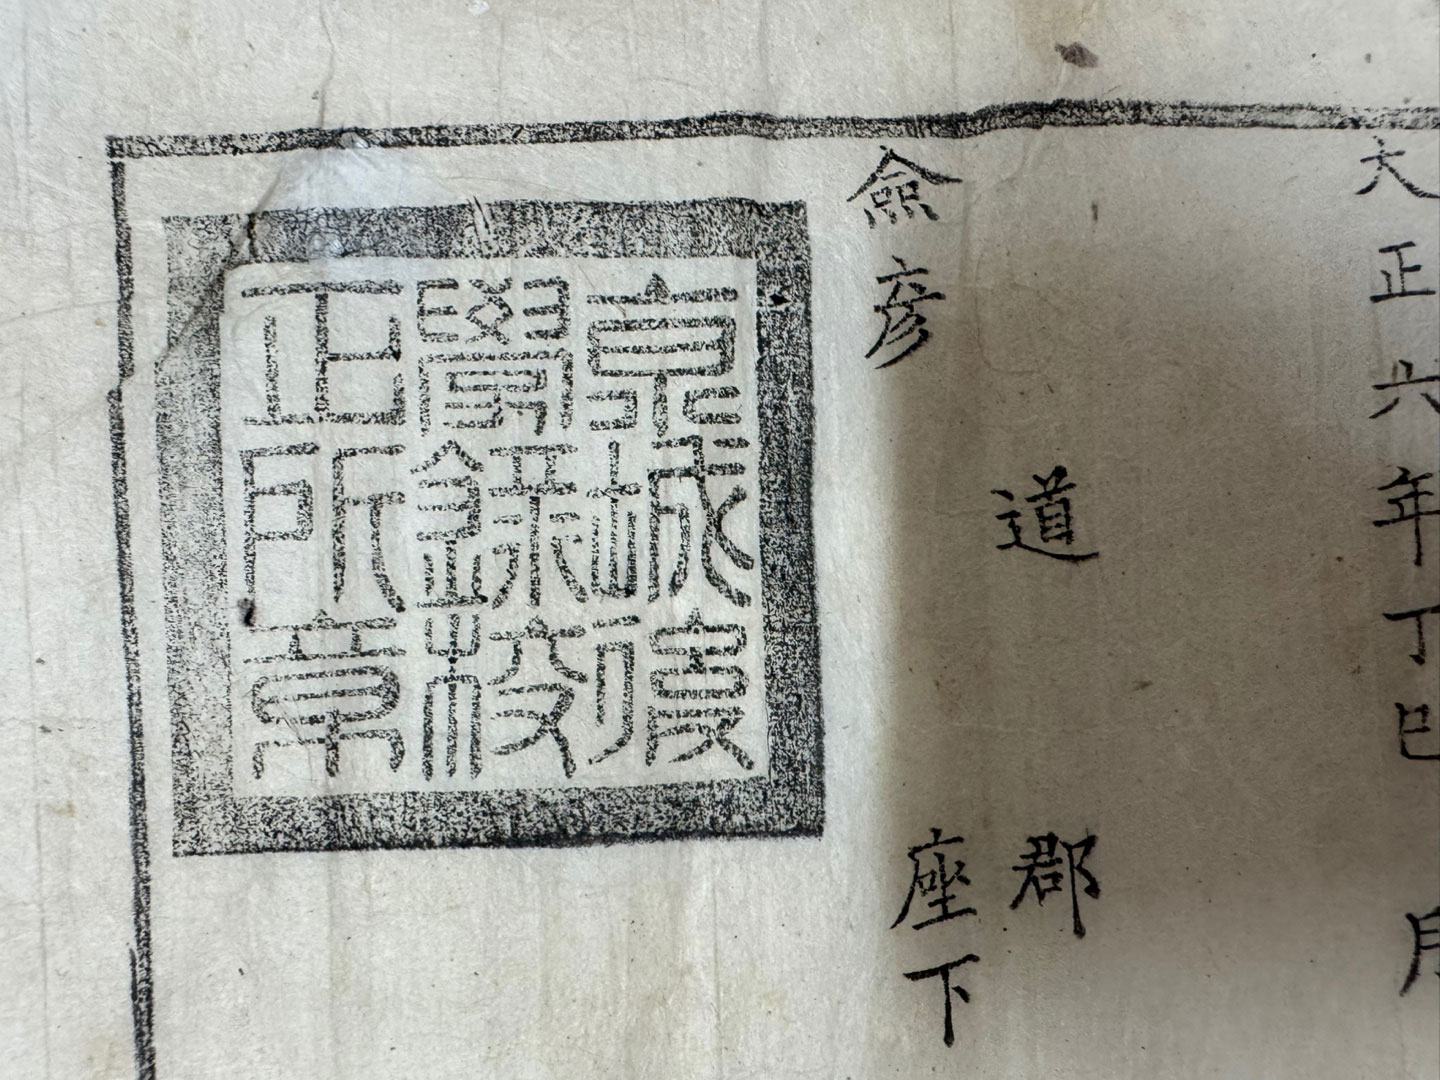 大正六年丁巳 月
道 郡
僉彦 座下
京城
學錄校
正所章